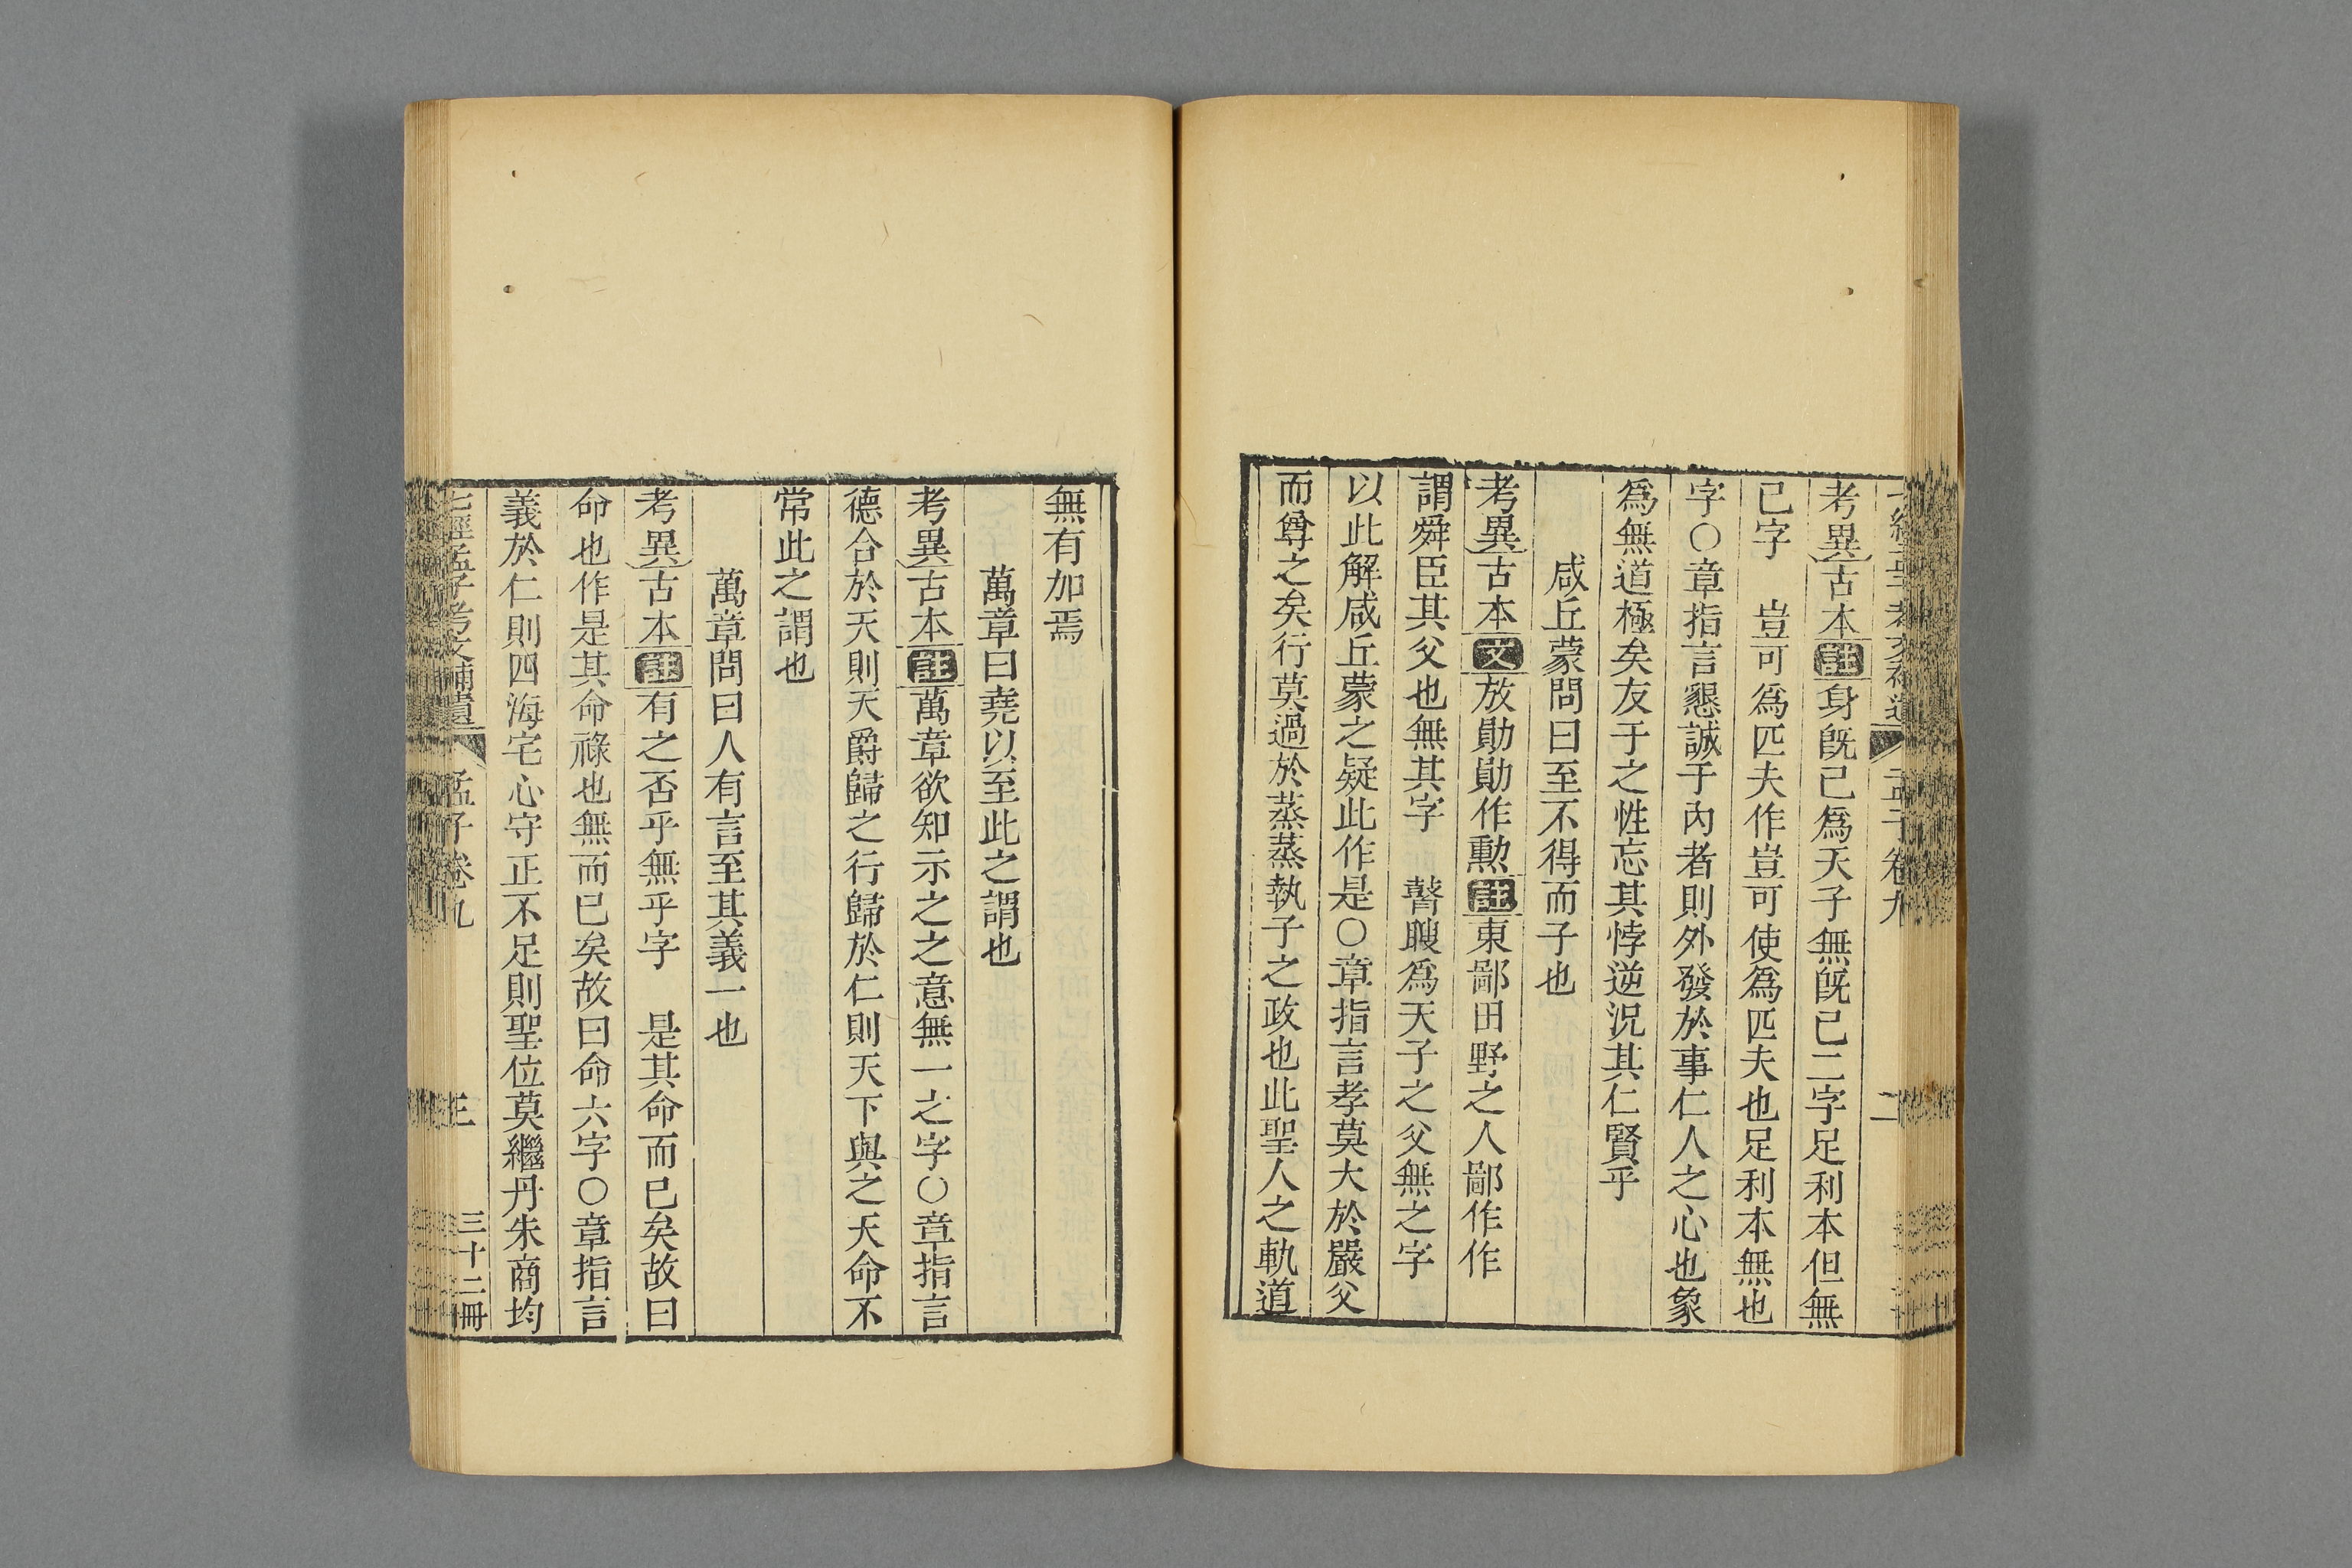 考異古本註身旣已爲天子無旣已二字足利本但無
已字　豈可爲匹夫作豈可使爲匹夫也足利本無也
字○章指言懇誠于內者則外發於事仁人之心也象
爲無道極矣友于之性忘其悖逆況其仁賢乎
咸丘蒙問曰至不得而子也
考異古本文放勛勛作勲註東鄙田野之人鄙作作
謂舜臣其父也無其字　瞽瞍爲天子之父無之字
以此解咸丘蒙之疑此作是○章指言孝莫大於嚴父
而尊之矣行莫過於蒸蒸執子之政也此聖人之軌道
無有加焉
萬章曰堯以至此之謂也
考異古本註萬章欲知示之之意無一之字○章指言
德合於天則天爵歸之行歸於仁則天下與之天命不
常此之謂也
萬章問曰人有言至其義一也
考異古本註有之否乎無乎字　是其命而已矣故曰
命也作是其命祿也無而已矣故曰命六字○章指言
義於仁則四海宅心守正不足則聖位莫繼丹朱商均
七經孟子考文補遺　孟子卷九　三　三十二冊